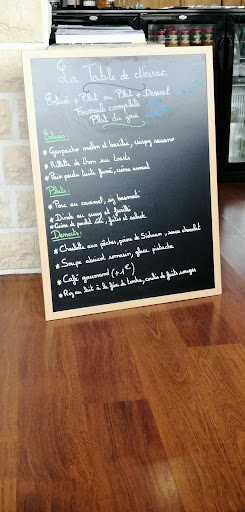 La Table de
Entrée + Plat ou Plat + Dessert
Formule complète
Plat du jour
Entrées:
* Gaspacho melon et basilic, crispy serrano
* Rillette de thon sur toasts
* Pain perdu truite fumé, crème
Plats:
* Porc au caramel, riz basmati
* Dinde au curry et
* Cuisse de poulet rôti, frites et salade
Desserts:
* Charlotte aux pêches, sauce chocolat
* Soupe abricot romarin, glace pistache
* Café gourmand (+1€)
* Riz au lait à la fève de tonka, coulis de fruits rouges